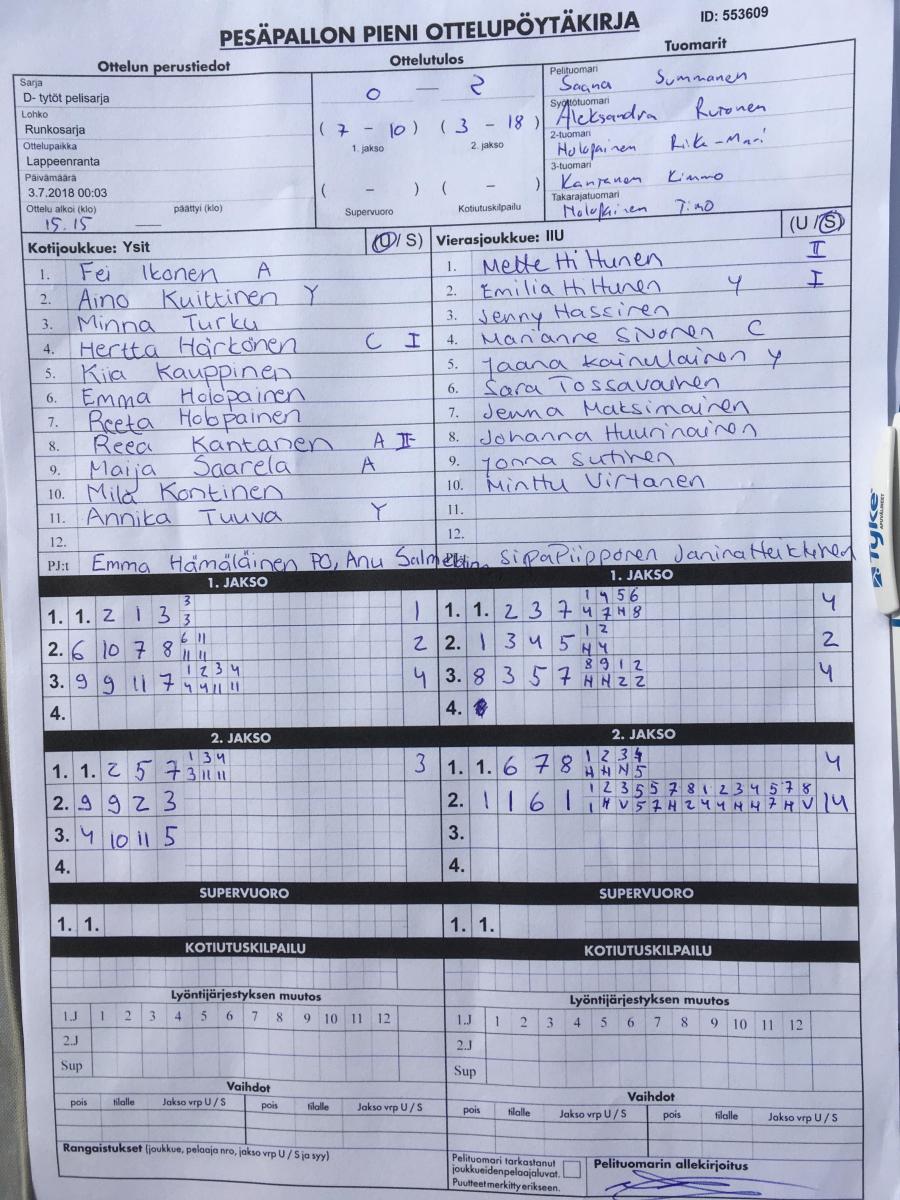 PESÄPALLON PIENI OTTELUPÖYTÄKIRJA
ID: 553609
Ottelun perustiedot
Sarja
D- tytöt pelisarja
Lohko
Runkosarja
Ottelupaikka
Lappeenranta
Päivämäärä
3.7.2018 00:03
Ottelu alkoi (klo) päättyi (klo)
15.15
Ottelutulos
0 — 2
(7 - 10) (3 - 18)
1. jakso 2. jakso
( - ) ( - )
Supervuoro Kotiutuskilpailu
Tuomarit
Pelituomari
Saana Summanen
Syöttötuomari
Aleksandra Rutonen
2-tuomari
Holopainen Rika-Mari
3-tuomari
Kantanen Kimmo
Takarajatuomari
Holopainen Timo
Kotijoukkue: Ysit (U/ S)
1. Fei Ikonen A
2. Aino Kuittinen Y
3. Minna Turku
4. Hertta Härkönen C I
5. Kiia Kauppinen
6. Emma Holopainen
7. Reeta Holopainen
8. Reea Kantanen A II
9. Maija Saarela A
10. Mila Kontinen
11. Annika Tuuva Y
12.
PJ:t Emma Hämäläinen PO, Anu
Vierasjoukkue: IIU (U /S)
1. Mette Hiltunen II
2. Emilia Hiltunen Y I
3. Jenny Hassinen
4. Marianne Sivonen C
5. Jaana Kainulainen Y
6. Sara Tossavainen
7. Jenna Maksimainen
8. Johanna Huurinainen
9. Jonna Sutinen
10. Minttu Virtanen
11.
12.
Janina Heikkinen
1. JAKSO
1. 1. 2 1 3 3 1
3
2. 6 10 7 8 6 11 2
11 11
3. 9 9 11 7 1 2 3 4 4
4 4 11 11
4.
1. JAKSO
1. 1. 2 3 7 1 4 5 6 4
4 7 H 8
2. 1 3 4 5 1 2 2
H 4
3. 8 3 5 7 8 9 1 2 4
H H 2 2
4.
2. JAKSO
1. 1. 2 5 7 1 3 4 3
3 11 11
2. 9 9 2 3
3. 4 10 11 5
4.
2. JAKSO
1. 1. 6 7 8 1 2 3 4 4
H H H 5
2. 1 1 6 1 1 2 3 5 5 7 8 1 2 3 4 5 7 8 14
1 H V 5 7 H 2 4 4 H H 7 H V
3.
4.
SUPERVUORO
1. 1.
SUPERVUORO
1. 1.
KOTIUTUSKILPAILU
KOTIUTUSKILPAILU
Lyöntijärjestyksen muutos
1.J 1 2 3 4 5 6 7 8 9 10 11 12
2.J
Sup
Lyöntijärjestyksen muutos
1.J 1 2 3 4 5 6 7 8 9 10 11 12
2.J
Sup
Vaihdot
pois tilalle Jakso vrp U / S pois tilalle Jakso vrp U / S
Vaihdot
pois tilalle Jakso vrp U / S pois tilalle Jakso vrp U / S
Rangaistukset (joukkue, pelaaja nro, jakso vrp U / S ja syy)
Pelituomari tarkastanut
joukkueidenpelaajaluvat.
Puutteet merkitty erikseen.
Pelituomarin allekirjoitus
Tyke